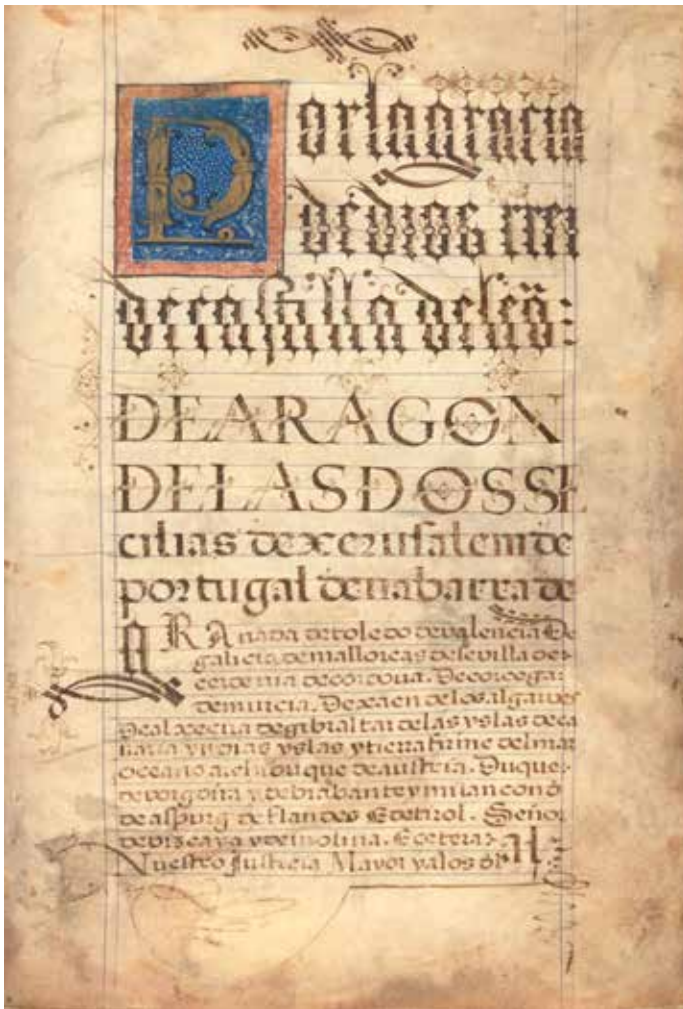 Por la gracia
de dios rrei
de castilla deleõ:
DE ARAGON
DE LAS DOS SE
cilias de xerusalem de
portugal de nabarra de
GRAnada de toledo de valencia De
galicia de mallorcas de sevilla de
cerdenia de cordova. De corcega
de murcia. De xaen de los algarves
De algecira de gibraltar de las yslas de ca
naria yndias yslas y tierra firme del mar
oceano archiduque de austria. Duque
de borgoña y de brabante y mian con
de aspurg de flandes E de tirol. Señor
de vizcaya y de molina. Ecetera
Nuestro Justicia Mayor y a los dl